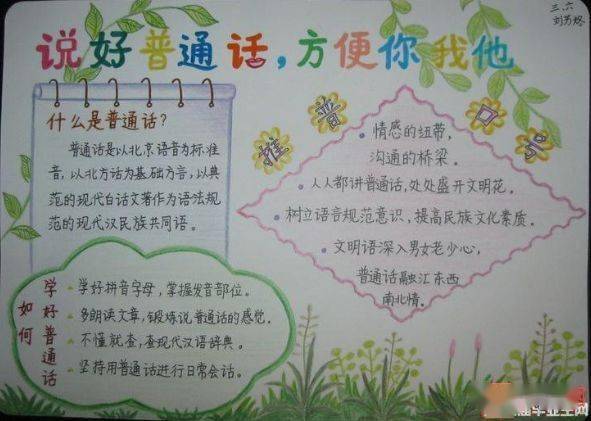 三.六
说好普通话,方便你我他
什么是普通话?
普通话是以北京语音为标准
音,以北方话为基础方音,以典
范的现代白话文著作为语法规
范的现代汉民族共同语。
推普口号
情感的纽带,
沟通的桥梁。
人人都讲普通话,处处盛开文明花。
树立语音规范意识,提高民族文化素质。
文明语深入男女老少心,
普通话融江东西
南北情。
如何
学好普通话
学好拼音字母,掌握发音部位。
多朗读文章,锻炼说普通话的感觉。
不懂就查,查现代汉语辞典。
坚持用普通话进行日常会话。
毕业生网